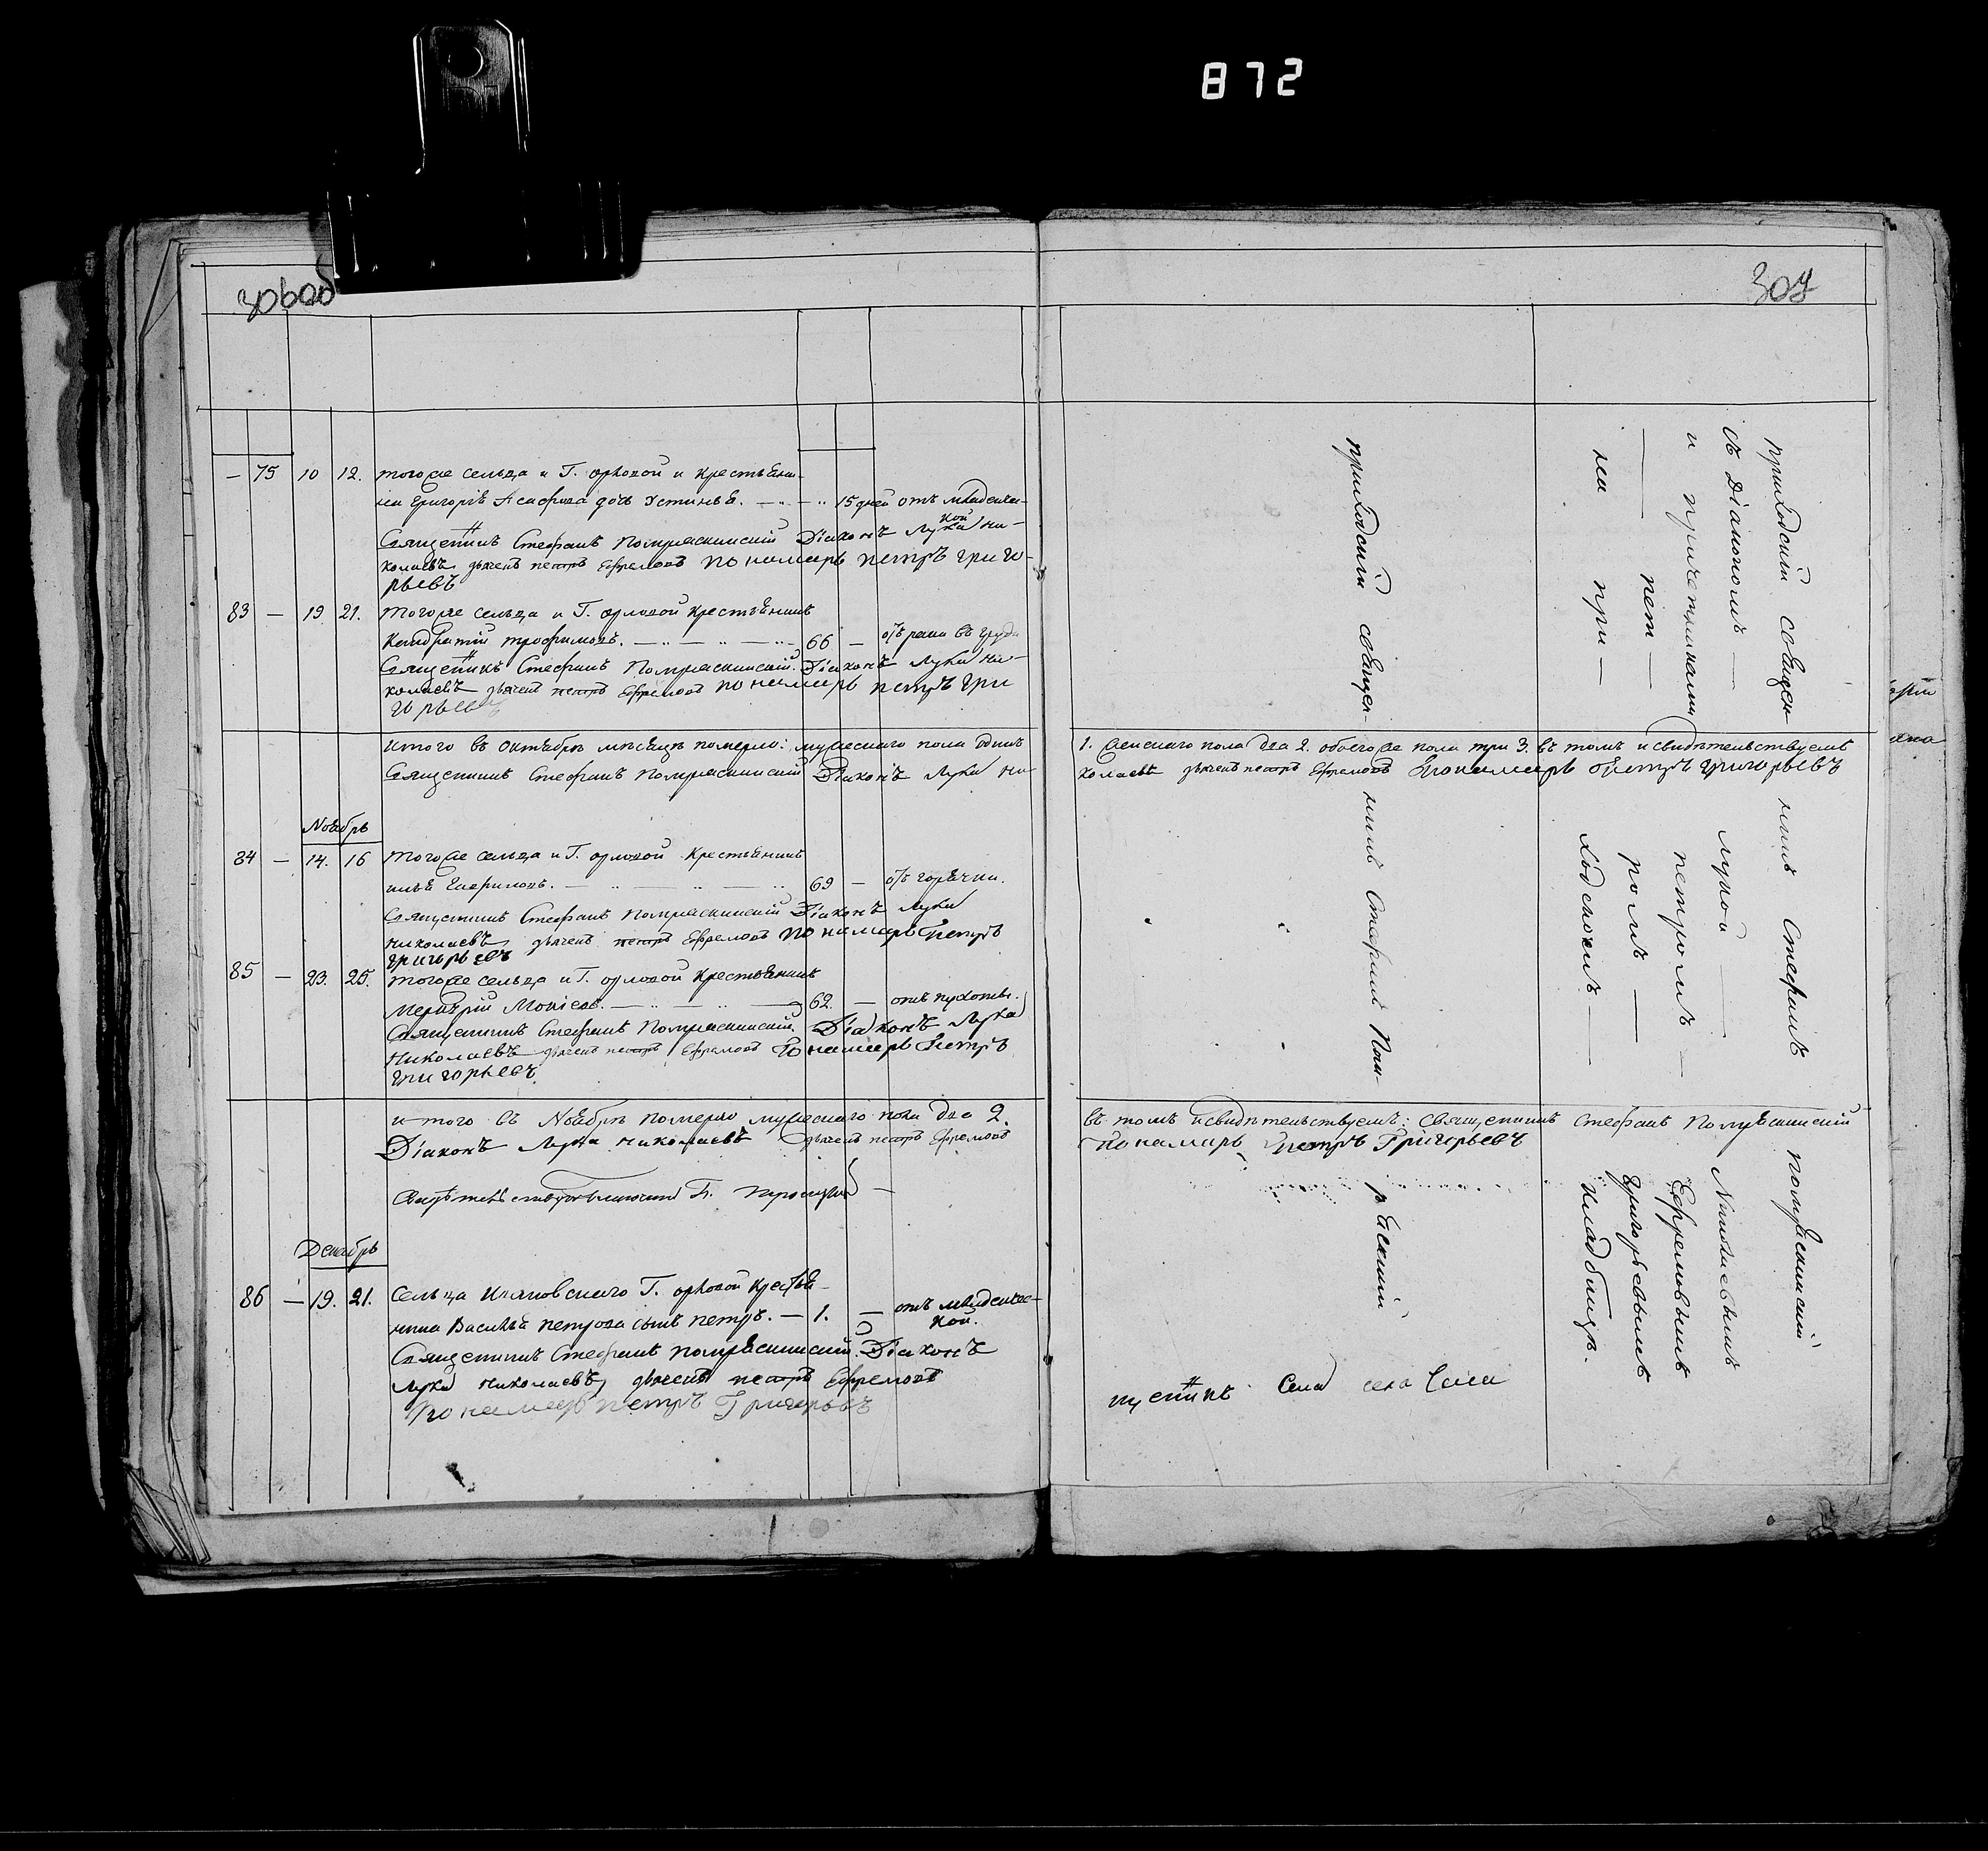 872
306об
307
– 75 10 12. тогоже сельца и Г. орловой и крестьяни-
на Григорія Асафова дочь Устинья. 15 дней отъ младенчес-
кой
Священникъ Стефанъ Діаконъ Лука Ни-
колаевъ дьячекъ петръ Ефремовъ пономарь петръ григо-
рьевъ
83 – 19 21. тогоже сельца и Г. орловой крестьянинъ
Кондратій трофимовъ. 66 – отъ раны въ груди
Священникъ Стефанъ Діаконъ Лука Ни-
колаевъ дьячекъ петръ Ефремовъ пономарь петръ гри
горьевъ
итого въ октябрѣ мѣсяцѣ померло: мужескаго пола одинъ 1. женскаго пола два 2. обоего же пола три 3. въ томъ и свидѣтельствуемъ
Священникъ Стефанъ Діаконъ Лука Ни-колаевъ дьячекъ петръ Ефремовъ Пономарь Петръ григорьевъ
Ноябрь
84 – 14. 16 тогоже сельца и Г. орловой крестьянинъ
илья 69 – отъ горячки.
Священникъ Стефанъ Діаконъ Лука
николаевъ дьячекъ петръ Ефремовъ пономарь Петръ
григорьевъ
85 – 23. 25. тогоже сельца и Г. орловой крестьянинъ
Моисеевъ. 62. – отъ чухотки.
Священникъ Стефанъ Діаконъ Лука
Николаевъ дьячекъ петръ Ефремовъ Пономарь Петръ
григорьевъ.
итого въ Ноябрѣ померло мужескаго пола два 2. въ томъ и свидѣтельствуемъ: Священникъ Стефанъ
Діаконъ Лука Николаевъ дьячекъ петръ Ефремовъ Пономарь Петръ Григорьевъ
Декабрь
86 – 19. 21. Сельца Г. орловой крестья-
нина Василья петрова сынъ петръ. – 1. – отъ младенчес-
кой.
Священникъ Стефанъ Діаконъ
Лука Николаевъ дьячекъ петръ Ефремовъ
Пономарь петръ Григорьевъ
приходскій священ-
никъ Стефанъ
приходскій священ
никъ Стефанъ
съ Діакономъ –
лукой
Николаевымъ
и причетниками
петромъ –
Ефремовымъ
– пет –
ромъ –
Григорьевымъ
на при –
ходскомъ –
кладбищѣ.
щенникъ